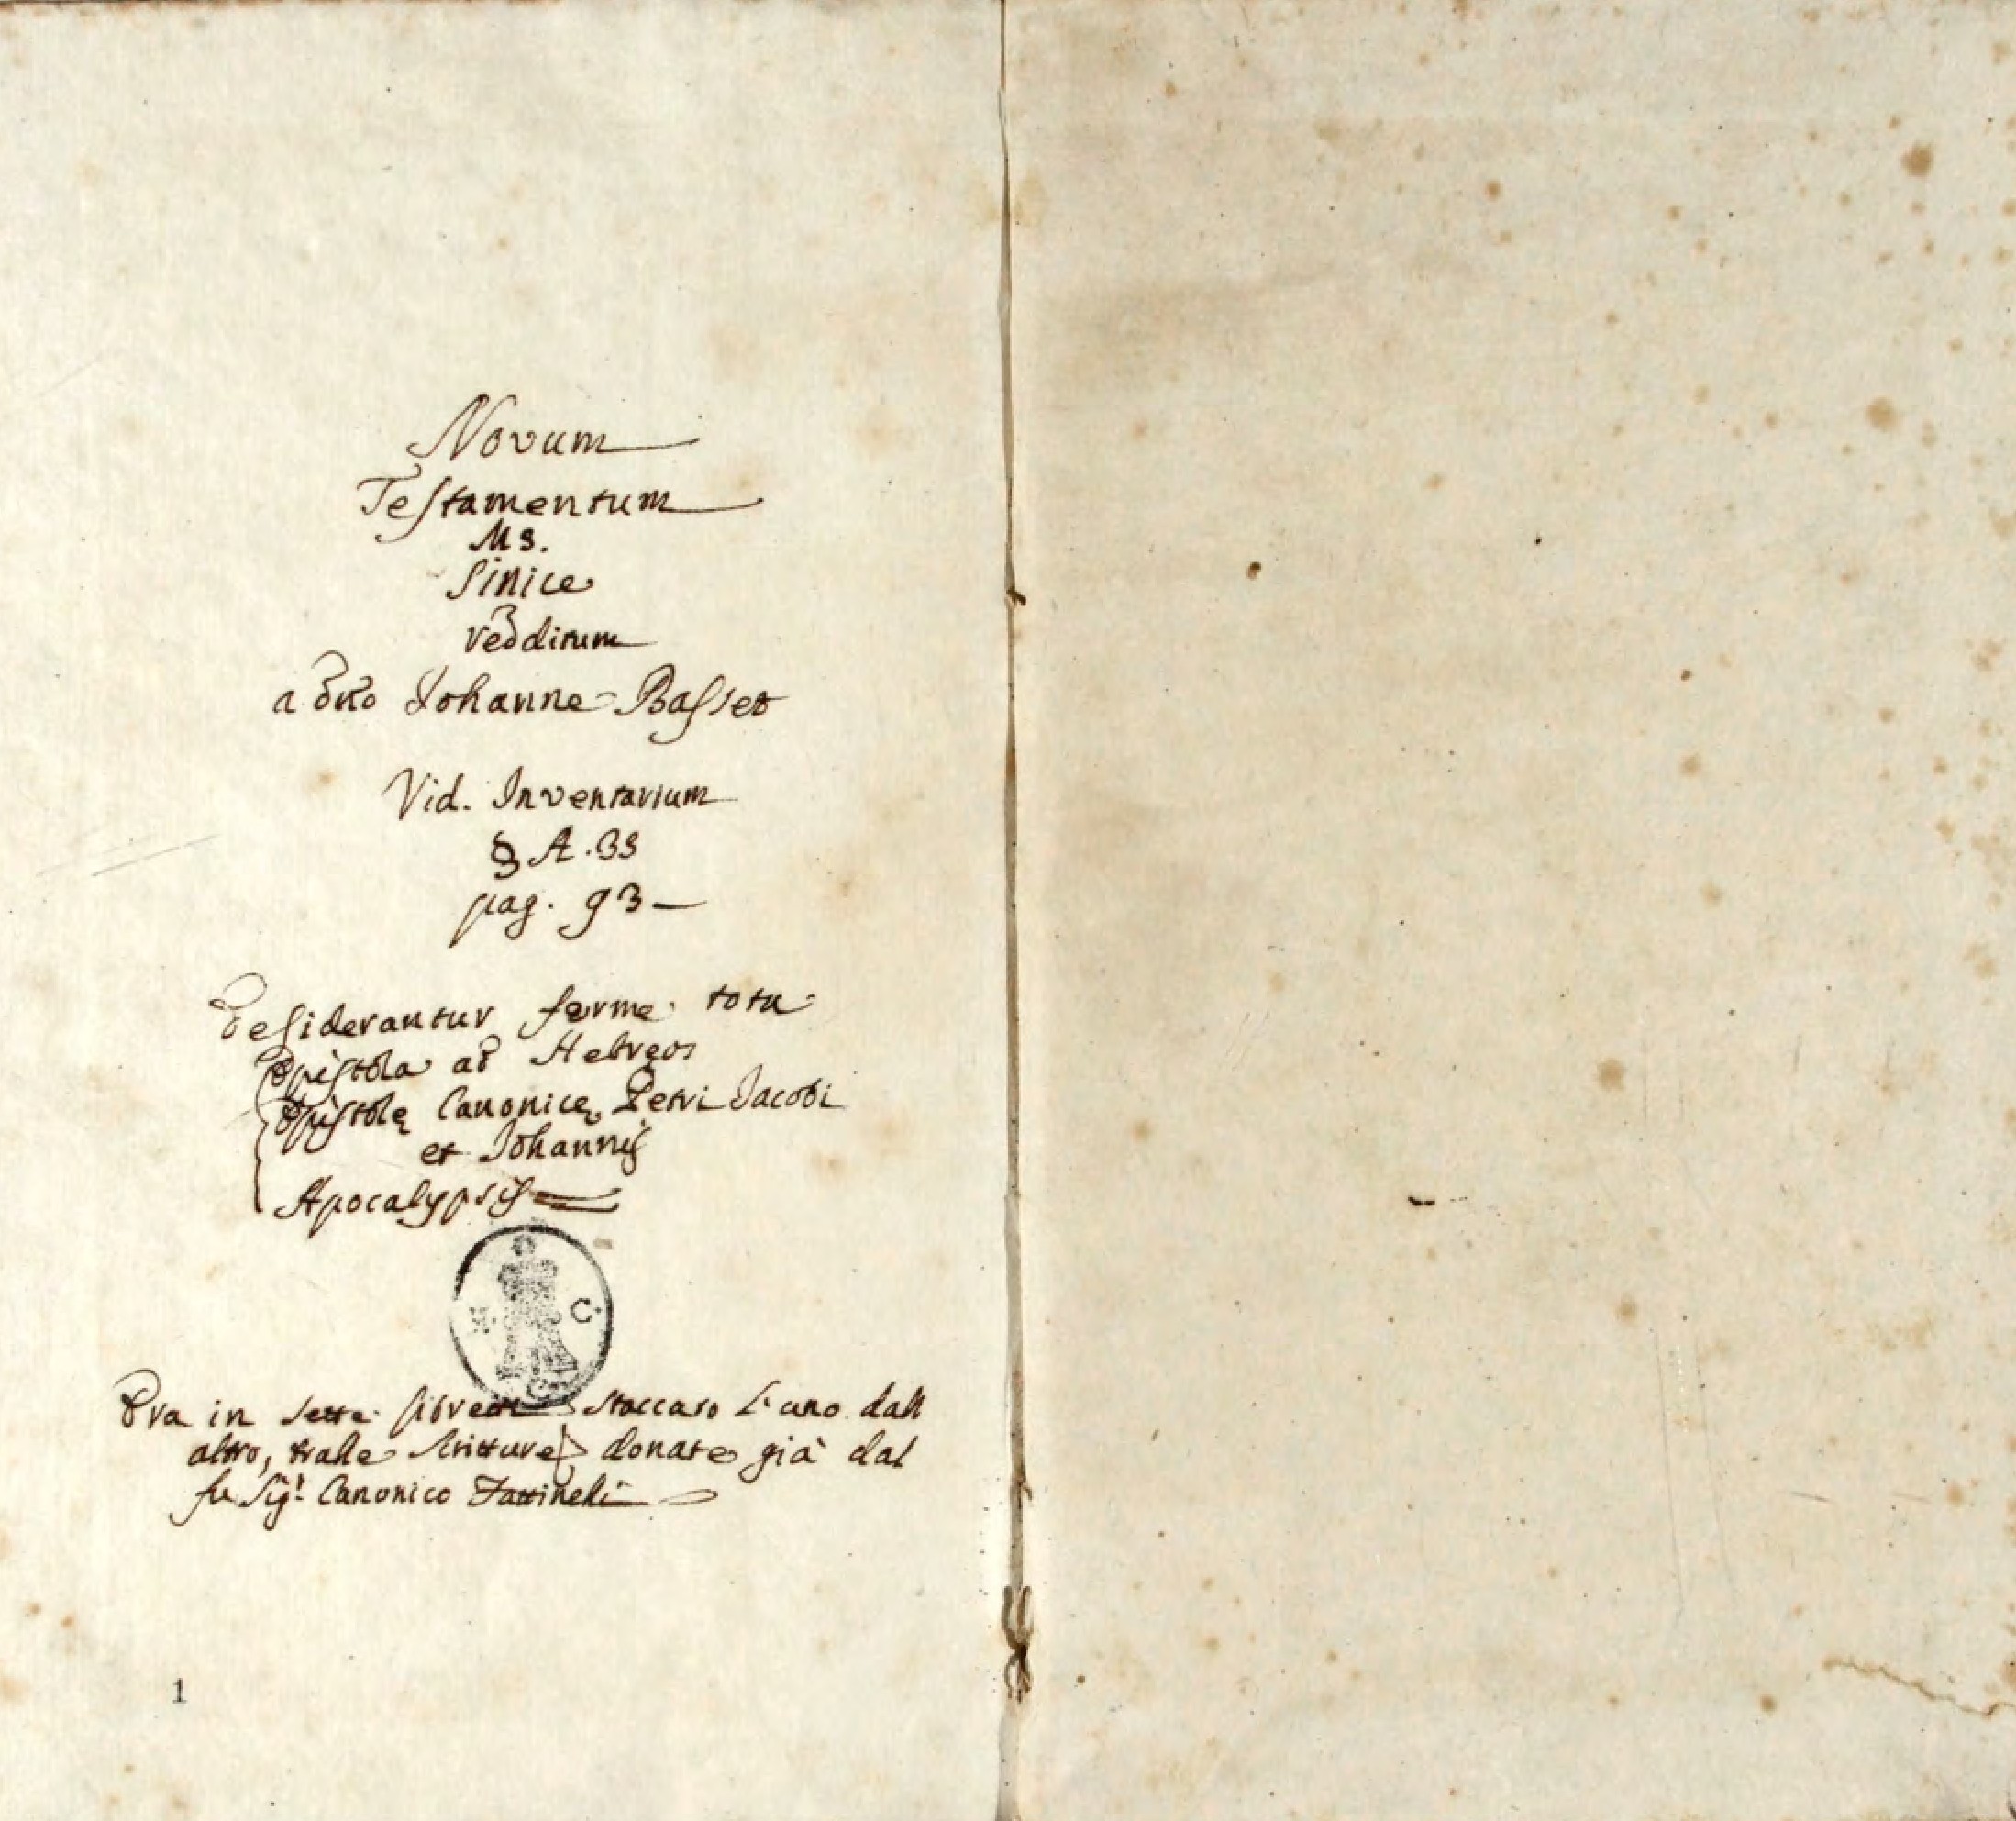 Novum
Testamentum
Ms.
Sinice
redditum
a Dno Johanne Basset
Vid. Inventarium
§ A. 33
pag. 93
Desiderantur ferme tota
Epistola ad Hebręos
Epistolę Canonicę Petri Jacobi
et Johannis
Apocalypsis
C.
Era in sette libretti staccato l'uno dall
altro, tralle scritture donate già dal
fu Sigr. Canonico Fattinelli
1